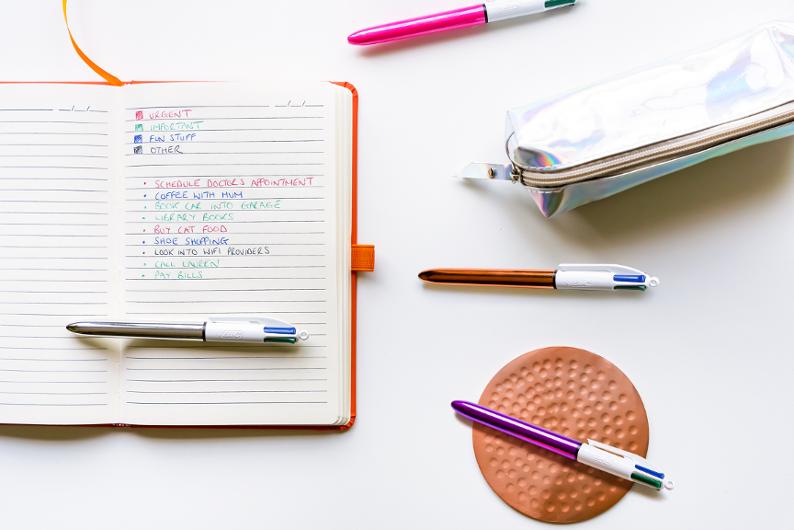 __/__/__
__/__/__
URGENT
IMPORTANT
FUN STUFF
OTHER
• SCHEDULE DOCTORS APPOINTMENT
• COFFEE WITH MUM
• BOOK CAR INTO GARAGE
• LIBRARY BOOKS
• BUY CAT FOOD
• SHOE SHOPPING
• LOOK INTO WIFI PROVIDERS
• CALL LAUREN
• PAY BILLS